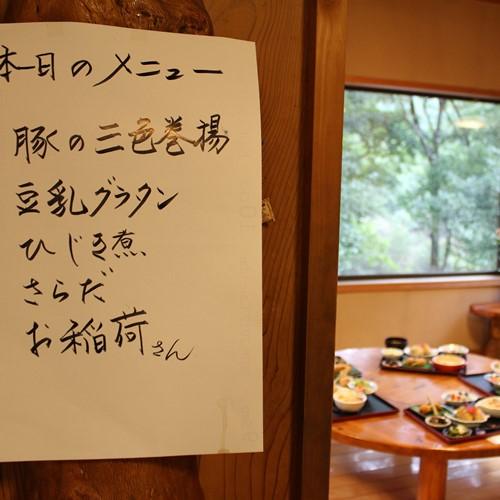 本日のメニュー
豚の三色巻揚
豆乳グラタン
ひじき煮
さらだ
お稲荷さん